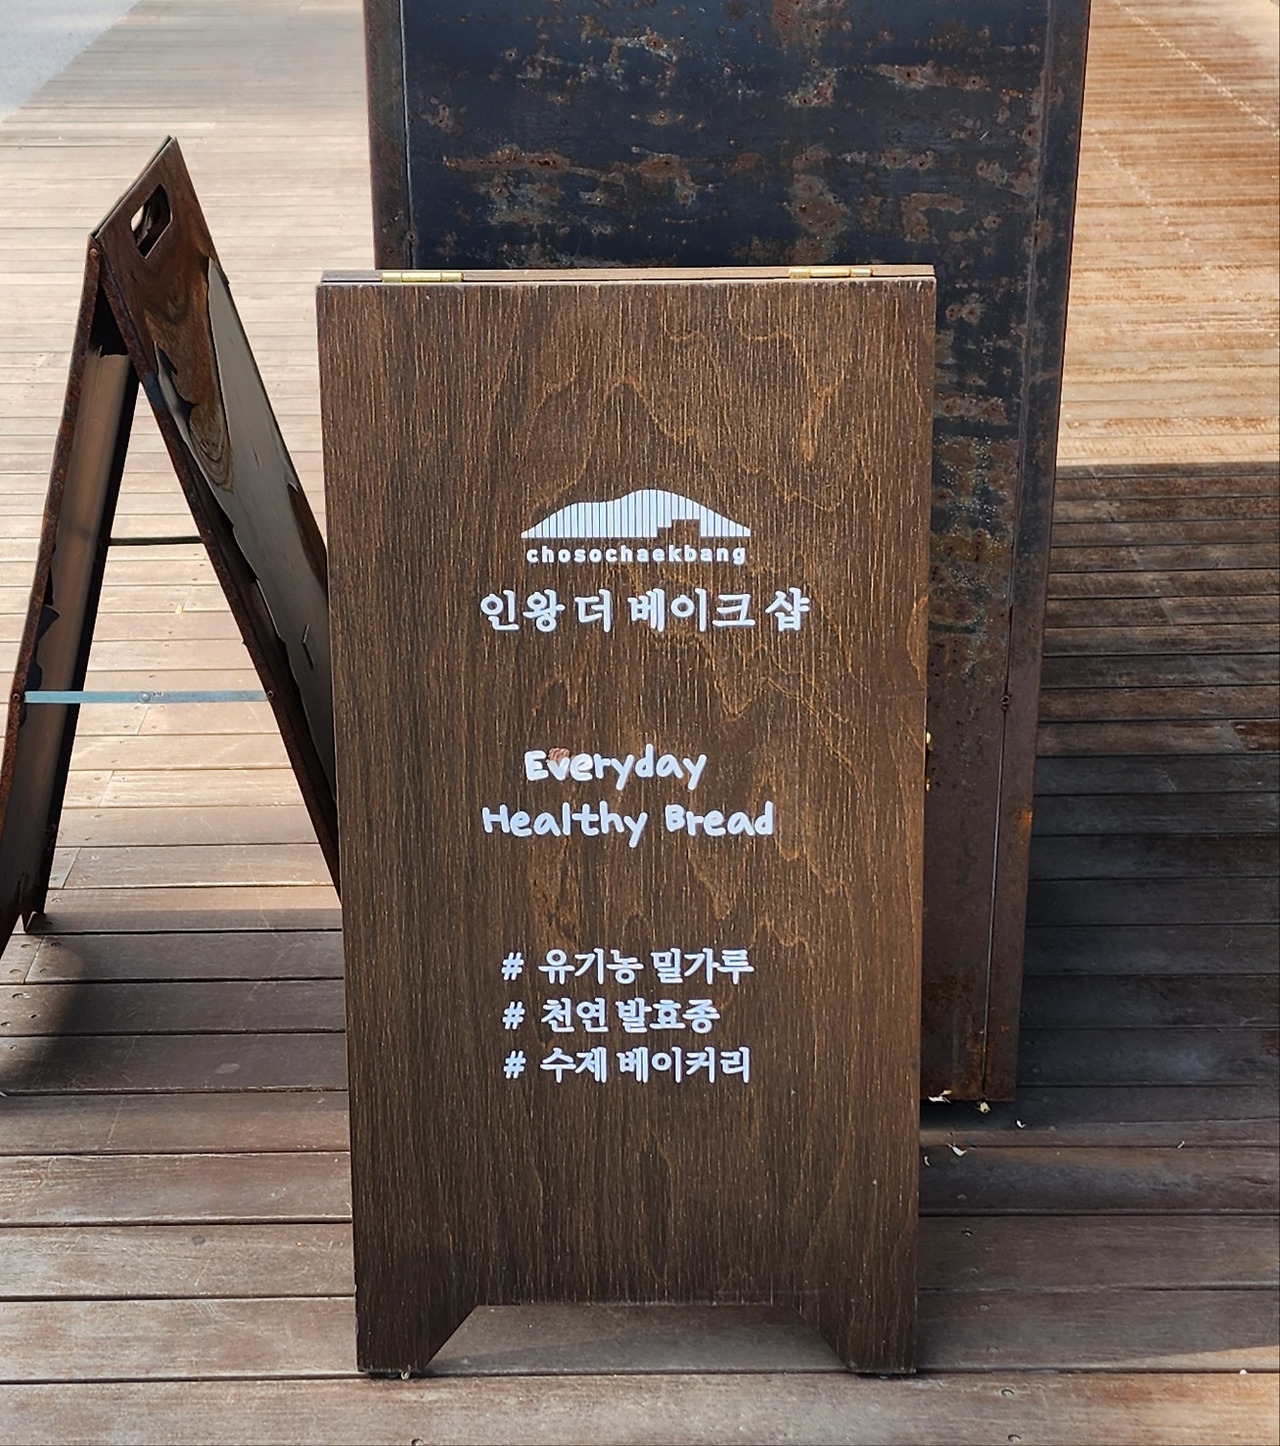 chosochaekbang
인왕 더 베이크 샵
Everyday
Healthy Bread
# 유기농 밀가루
# 천연 발효종
# 수제 베이커리